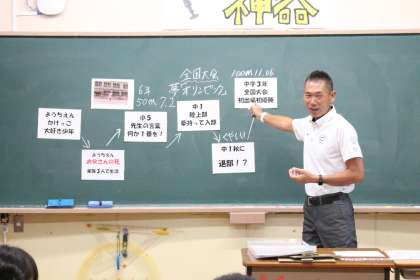 神器
全国大会
夢オリンピック
6年
50m 7.2
100m 11.06
ようちえん
かけっこ
大好き少年
ようちえん
お父さんの死
家族3人で生活
小5
先生の言葉
何か1番を!
中1
陸上部
夢持って入部
くやしい
中1秋に
退部!?
中学3年
全国大会
初出場初優勝